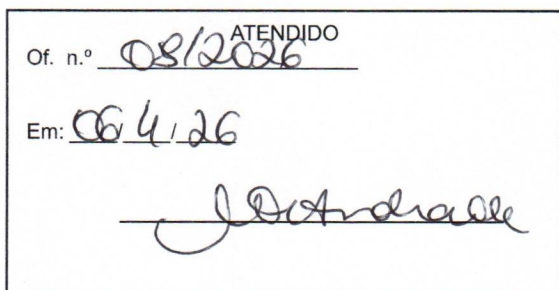 ATENDIDO
Of. n.º 08/2026
Em: 06/4/26